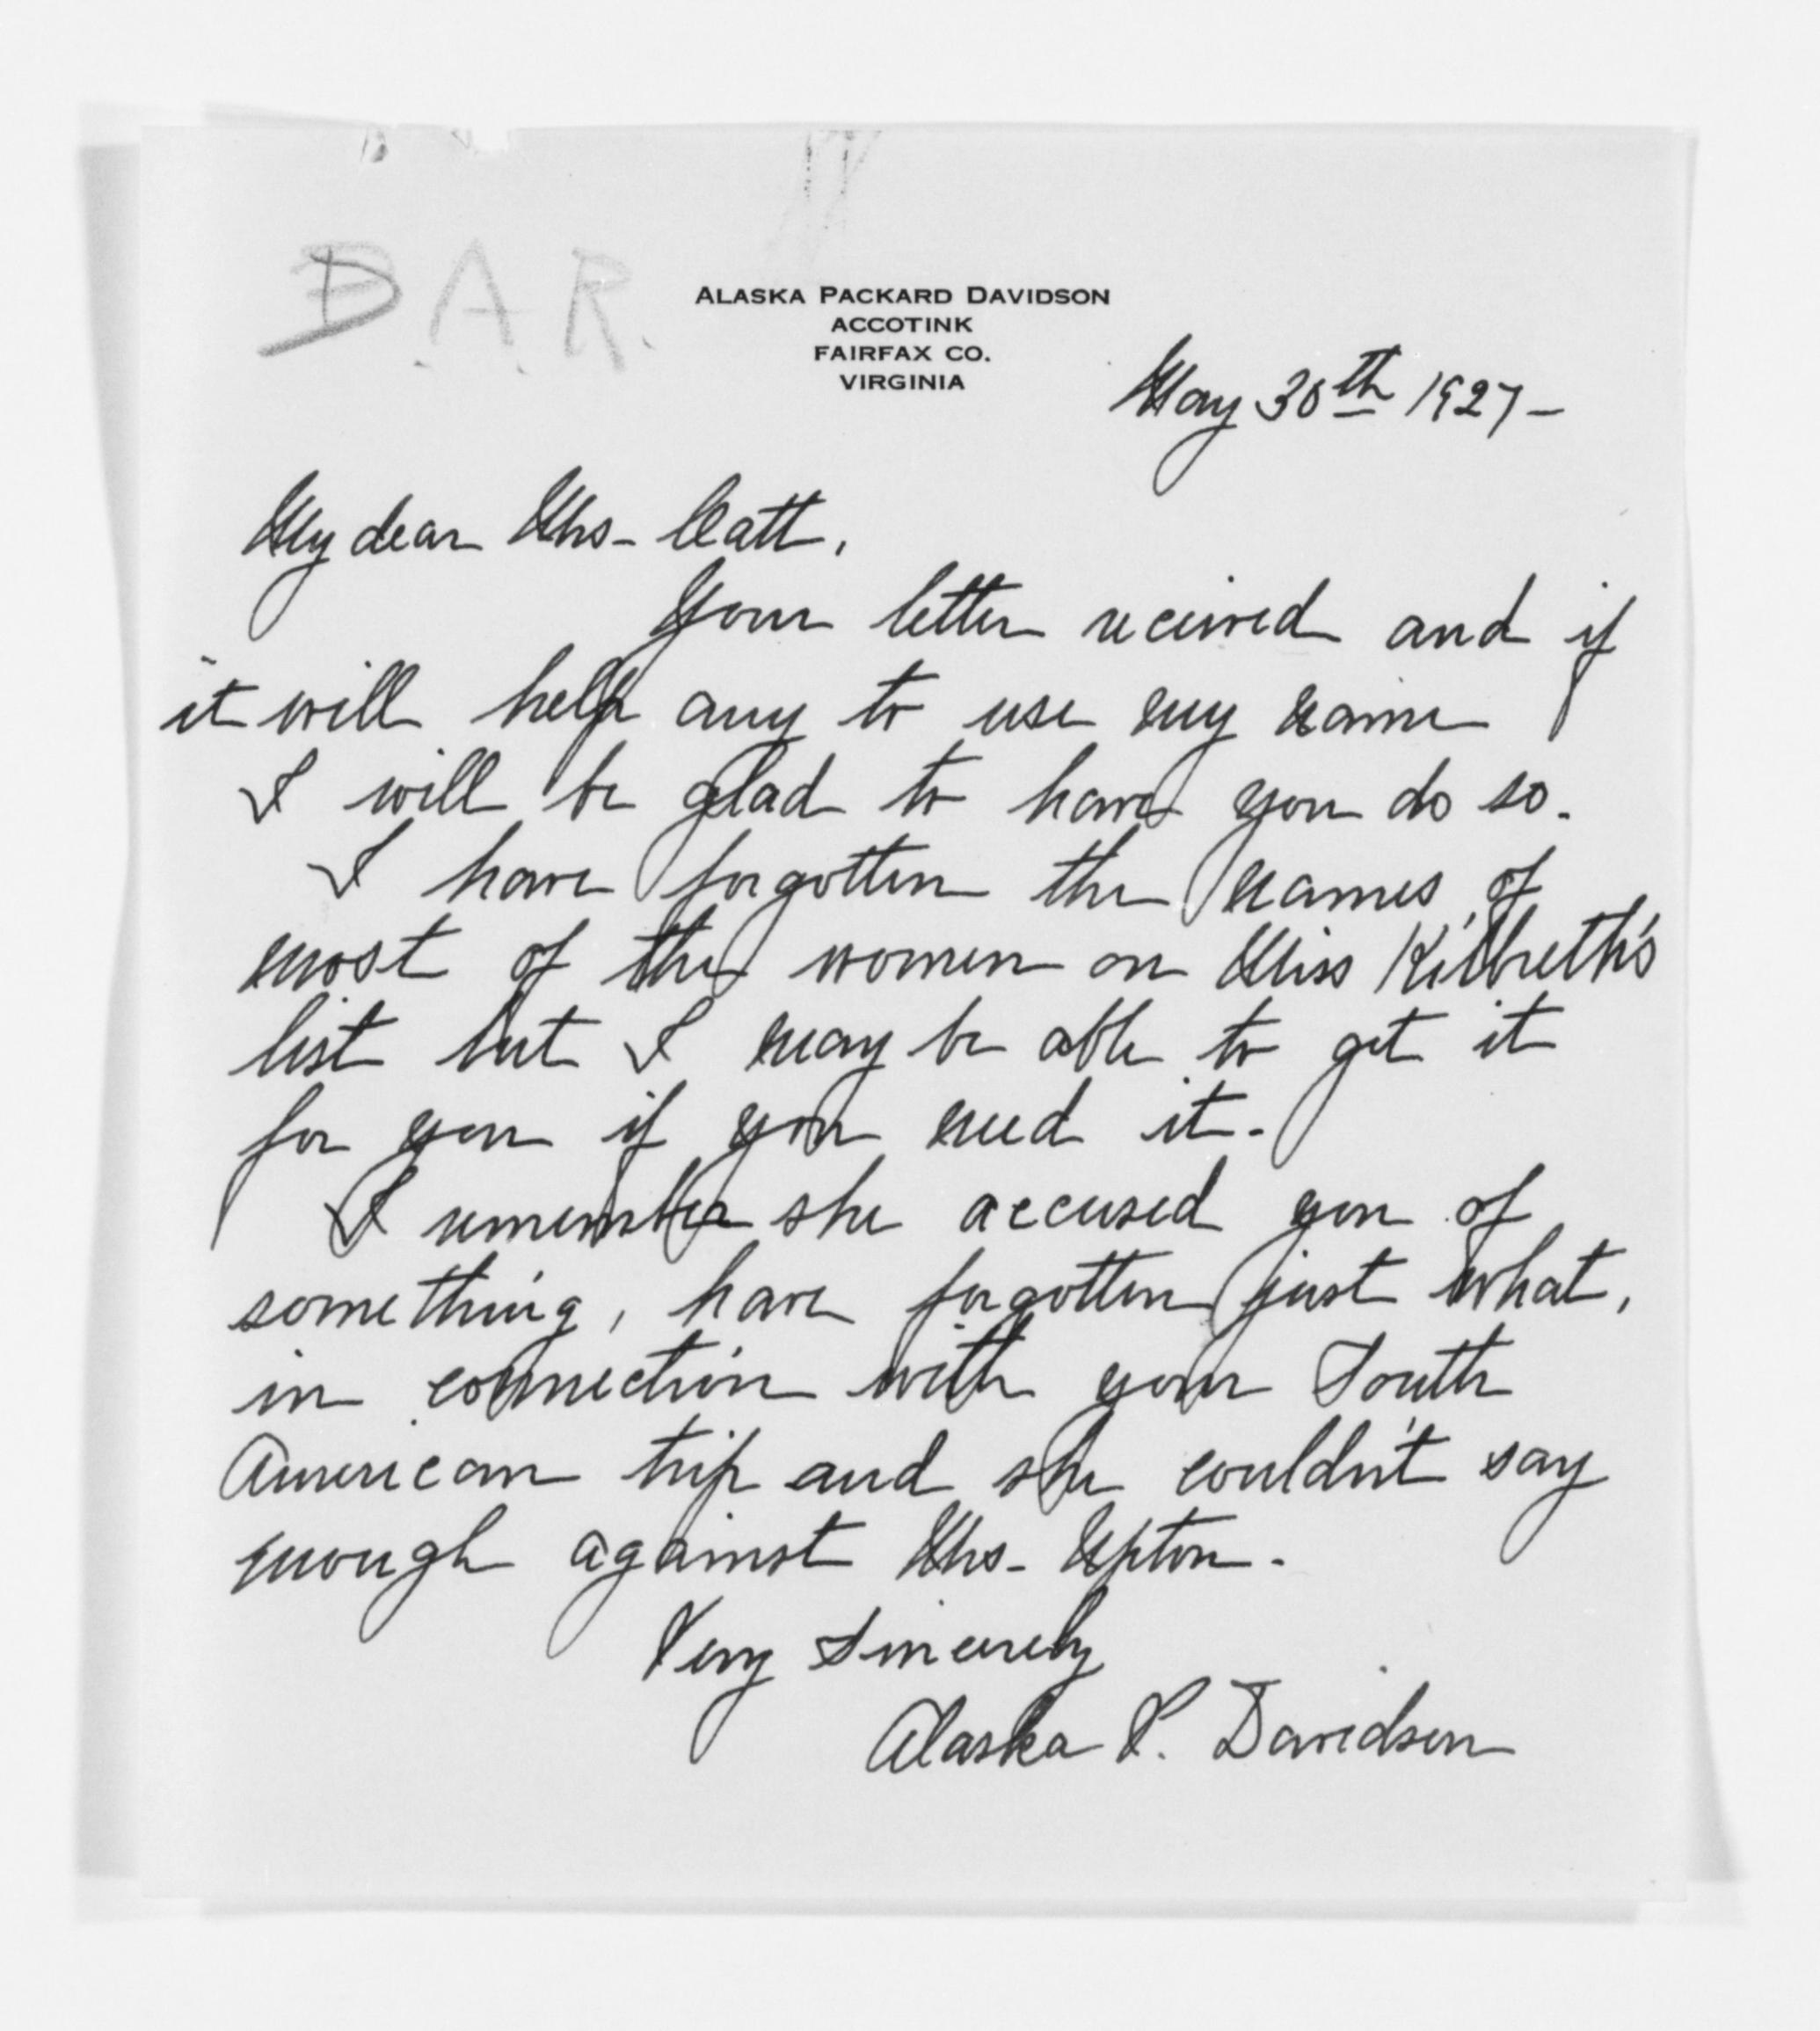 D.A.R.
ALASKA PACKARD DAVIDSON
ACCOTINK
FAIRFAX CO.
VIRGINIA
May 30th 1927-
My dear Mrs- Catt,
Your letter received and if
it will help any to use my name
I will be glad to have you do so.
I have forgotten the names of
most of the women on Miss Kilbreth's
list but I may be able to get it
for you if you need it-
I remember she accused you of
something, have forgotten just what,
in connection with your South
American trip and she couldn't say
enough against Mrs- Upton-
Very Sincerely
Alaska P. Davidson